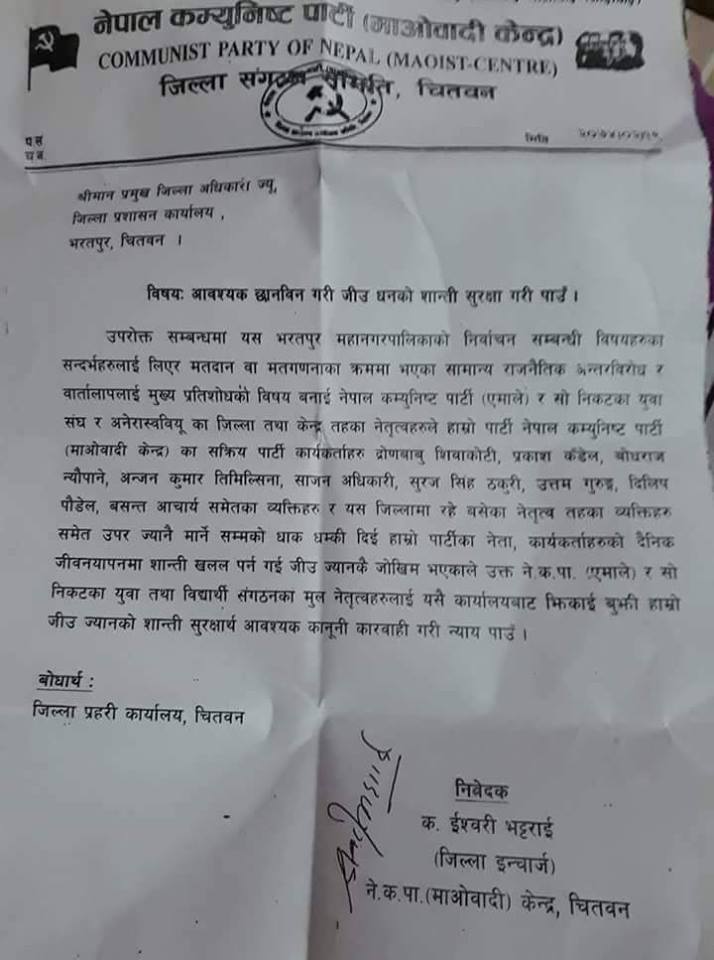 नेपाल कम्युनिष्ट पार्टी (माओवादी केन्द्र)
COMMUNIST PARTY OF NEPAL (MAOIST-CENTRE)
जिल्ला संगठन समिति, चितवन
प.सं
च.नं.
मिति
श्रीमान प्रमुख जिल्ला अधिकारी ज्यू,
जिल्ला प्रशासन कार्यालय ,
भरतपुर, चितवन ।
विषयः आवश्यक छानविन गरी जीउ धनको शान्ती सुरक्षा गरी पाउँ ।
उपरोक्त सम्बन्धमा यस भरतपुर महानगरपालिकाको निर्वाचन सम्बन्धी विषयहरुका
सन्दर्भहरुलाई लिएर मतदान वा मतगणनाका क्रममा भएका सामान्य राजनैतिक अन्तरविरोध र
वार्तालापलाई मुख्य प्रतिशोधको विषय बनाई नेपाल कम्युनिष्ट पार्टी (एमाले) र सो निकटका युवा
संघ र अनेरास्ववियू का जिल्ला तथा केन्द्र तहका नेतृत्वहरुले हाम्रो पार्टी नेपाल कम्युनिष्ट पार्टी
(माओवादी केन्द्र) का सक्रिय पार्टी कार्यकर्ताहरु द्रोणबाबु शिवाकोटी, प्रकाश कँडेल, बोधराज
न्यौपाने, अन्जन कुमार तिमिल्सिना, साजन अधिकारी, सुरज सिंह ठकुरी, उत्तम गुरुङ्ग, दिलिप
पौडेल, बसन्त आचार्य समेतका व्यक्तिहरु र यस जिल्लामा रहे बसेका नेतृत्व तहका व्यक्तिहरु
समेत उपर ज्यानै मार्ने सम्मको धाक धम्की दिई हाम्रो पार्टीका नेता, कार्यकर्ताहरुको दैनिक
जीवनयापनमा शान्ती खलल पर्न गई जीउ ज्यानकै जोखिम भएकाले उक्त ने.क.पा. (एमाले) र सो
निकटका युवा तथा विद्यार्थी संगठनका मुल नेतृत्वहरुलाई यसै कार्यालयबाट झिकाई बुझी हाम्रो
जीउ ज्यानको शान्ती सुरक्षार्थ आवश्यक कानूनी कारवाही गरी न्याय पाउँ ।
बोधार्थ :
जिल्ला प्रहरी कार्यालय, चितवन
निवेदक
क. ईश्वरी भट्टराई
(जिल्ला इन्चार्ज)
ने.क.पा.(माओवादी) केन्द्र, चितवन